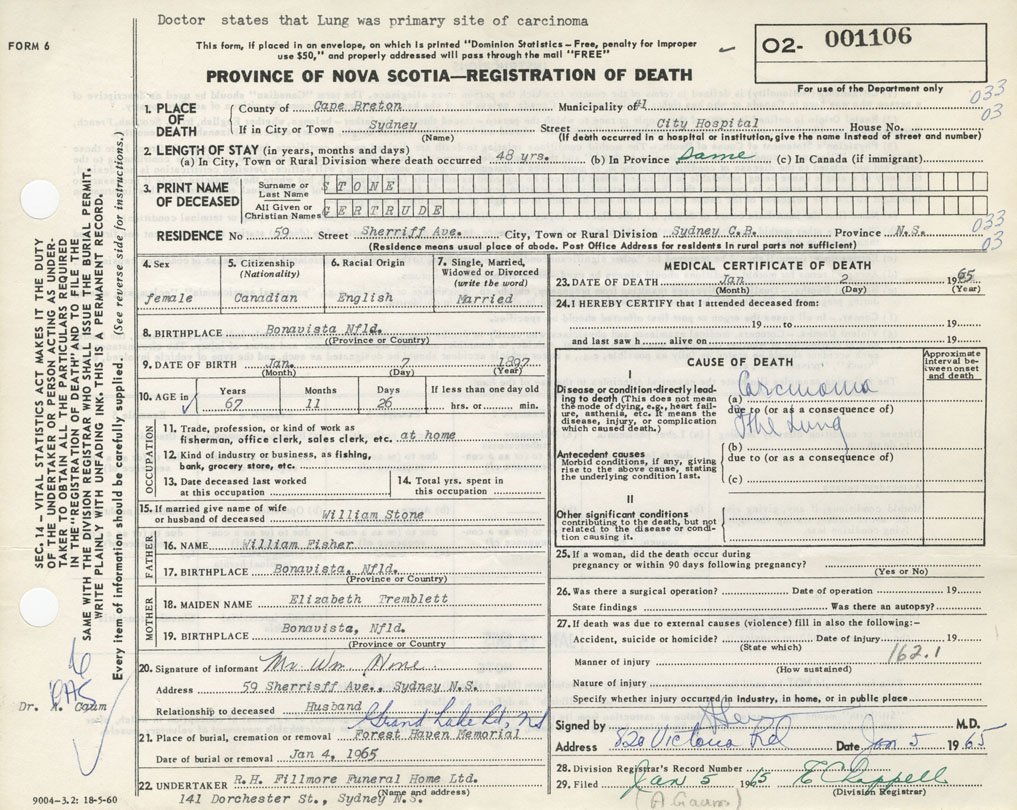 Doctor states that Lung was primary site of carcinoma
FORM 6
This form, if placed in an envelope, on which is printed "Dominion Statistics—Free, penalty for improper
use $50," and properly addressed will pass through the mail "FREE"
O2- 001106
PROVINCE OF NOVA SCOTIA—REGISTRATION OF DEATH
For use of the Department only
033
03
1. PLACE OF DEATH
County of Cape Breton Municipality of #1
If in City or Town Sydney Street City Hospital House No.
(Name) (If death occurred in a hospital or institution, give the name instead of street and number)
2. LENGTH OF STAY (in years, months and days)
(a) In City, Town or Rural Division where death occurred 48 yrs. (b) In Province Same (c) In Canada (if immigrant)
3. PRINT NAME OF DECEASED
Surname or Last Name STONE
All Given or Christian Names GERTRUDE
RESIDENCE No 59 Street Sherriff Ave. City, Town or Rural Division Sydney C.B. Province N.S.
033
03
(Residence means usual place of abode. Post Office Address for residents in rural parts not sufficient)
4. Sex female
5. Citizenship (Nationality) Canadian
6. Racial Origin English
7. Single, Married, Widowed or Divorced (write the word) Married
8. BIRTHPLACE Bonavista Nfld.
(Province or Country)
9. DATE OF BIRTH Jan. 7 1897
(Month) (Day) (Year)
10. AGE in Years 67 Months 11 Days 26 If less than one day old hrs. or min.
OCCUPATION
11. Trade, profession, or kind of work as
fisherman, office clerk, sales clerk, etc. at home
12. Kind of industry or business, as fishing,
bank, grocery store, etc.
13. Date deceased last worked
at this occupation
14. Total yrs. spent in
this occupation
15. If married give name of wife
or husband of deceased William Stone
FATHER
16. NAME William Fisher
17. BIRTHPLACE Bonavista, Nfld.
(Province or Country)
MOTHER
18. MAIDEN NAME Elizabeth Tremblett
19. BIRTHPLACE Bonavista, Nfld.
(Province or Country)
20. Signature of informant Mr Wm Stone
Address 59 Sherrisff Ave., Sydney N.S.
Relationship to deceased Husband
Grand Lake Rd,
21. Place of burial, cremation or removal Forest Haven Memorial
Date of burial or removal Jan 4, 1965
22. UNDERTAKER R.H. Fillmore Funeral Home Ltd.
(Name and address)
141 Dorchester St., Sydney N.S.
MEDICAL CERTIFICATE OF DEATH
23. DATE OF DEATH Jan. 2 1965
(Month) (Day) (Year)
24. I HEREBY CERTIFY that I attended deceased from:
19 to 19
and last saw h alive on 19
CAUSE OF DEATH
Approximate interval between onset and death
I
Disease or condition directly leading to death (This does not mean the mode of dying, e.g., heart failure, asthenia, etc. It means the disease, injury, or complication which caused death.)
(a) Carcinoma
due to (or as a consequence of)
of the Lung
(b)
Antecedent causes
Morbid conditions, if any, giving rise to the above cause, stating the underlying condition last.
due to (or as a consequence of)
(c)
II
Other significant conditions
contributing to the death, but not related to the disease or condition causing it.
25. If a woman, did the death occur during
pregnancy or within 90 days following pregnancy?
(Yes or No)
26. Was there a surgical operation? Date of operation 19
State findings Was there an autopsy?
27. If death was due to external causes (violence) fill in also the following:—
Accident, suicide or homicide? Date of injury 19
(State which)
162.1
Manner of injury
(How sustained)
Nature of injury
Specify whether injury occurred in industry, in home, or in public place
Signed by M.D.
Address 820 Victoria Rd Date Jan 5 1965
28. Division Registrar's Record Number
29. Filed Jan 5 1965 E Chappell
(Division Registrar)
SEC. 14 – VITAL STATISTICS ACT MAKES IT THE DUTY
OF THE UNDERTAKER OR PERSON ACTING AS UNDER-
TAKER TO OBTAIN ALL THE PARTICULARS REQUIRED
IN THE "REGISTRATION OF DEATH" AND TO FILE THE
SAME WITH THE DIVISION REGISTRAR WHO SHALL ISSUE THE BURIAL PERMIT.
WRITE PLAINLY WITH UNFADING INK. THIS IS A PERMANENT RECORD.
Every item of information should be carefully supplied. (See reverse side for instructions.)
Dr. A. Gaum
9004-3.2: 18-5-60